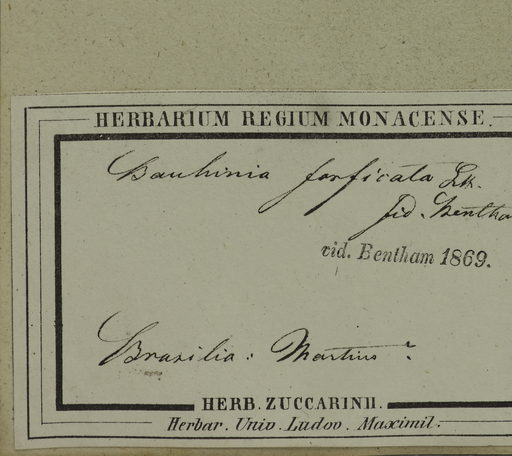 HERBARIUM REGIUM MONACENSE.
Bauhinia forficata Lk.
fid. Bentha
vid. Bentham 1869.
Brasilia: Martius ?
HERB. ZUCCARINII.
Herbar. Univ. Ludov. Maximil.